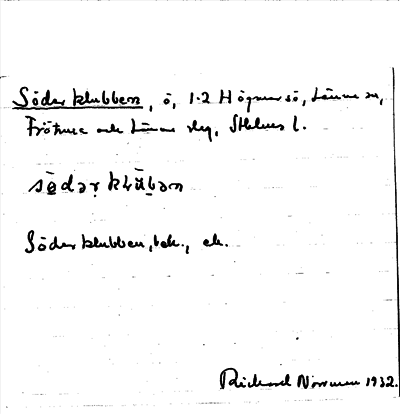 Söderklubben, ö, 1-2 Högmarsö, Länna sn,
Frötuna och Länna slg, Sthlms l.
södərklubən
Söderklubben, bek., ek.
Rickard Norrman 1932.